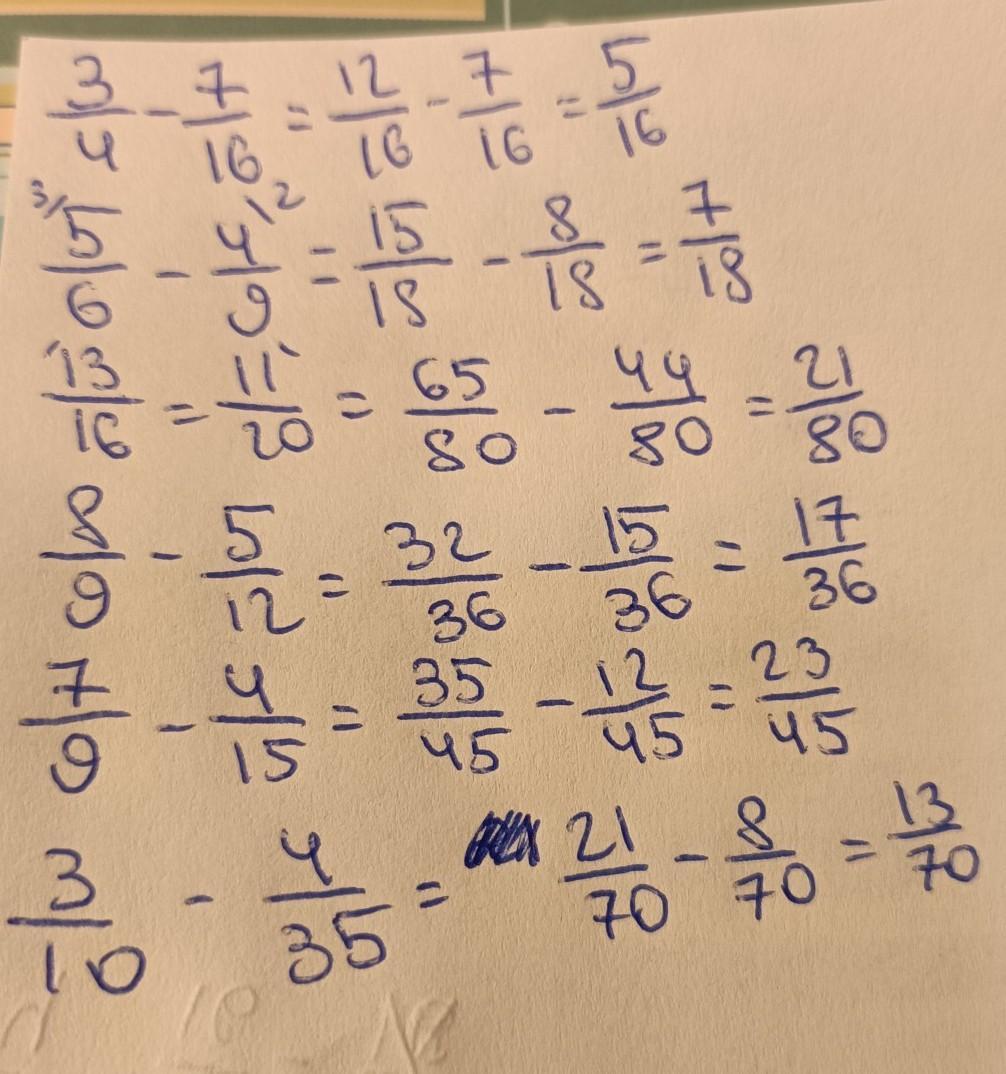 3/4 - 7/16 = 12/16 - 7/16 = 5/16
3/ 5/6 - 4/9 \2 = 15/18 - 8/18 = 7/18
13/16 = 11/20 = 65/80 - 44/80 = 21/80
8/9 - 5/12 = 32/36 - 15/36 = 17/36
7/9 - 4/15 = 35/45 - 12/45 = 23/45
3/10 - 4/35 = 21/70 - 8/70 = 13/70